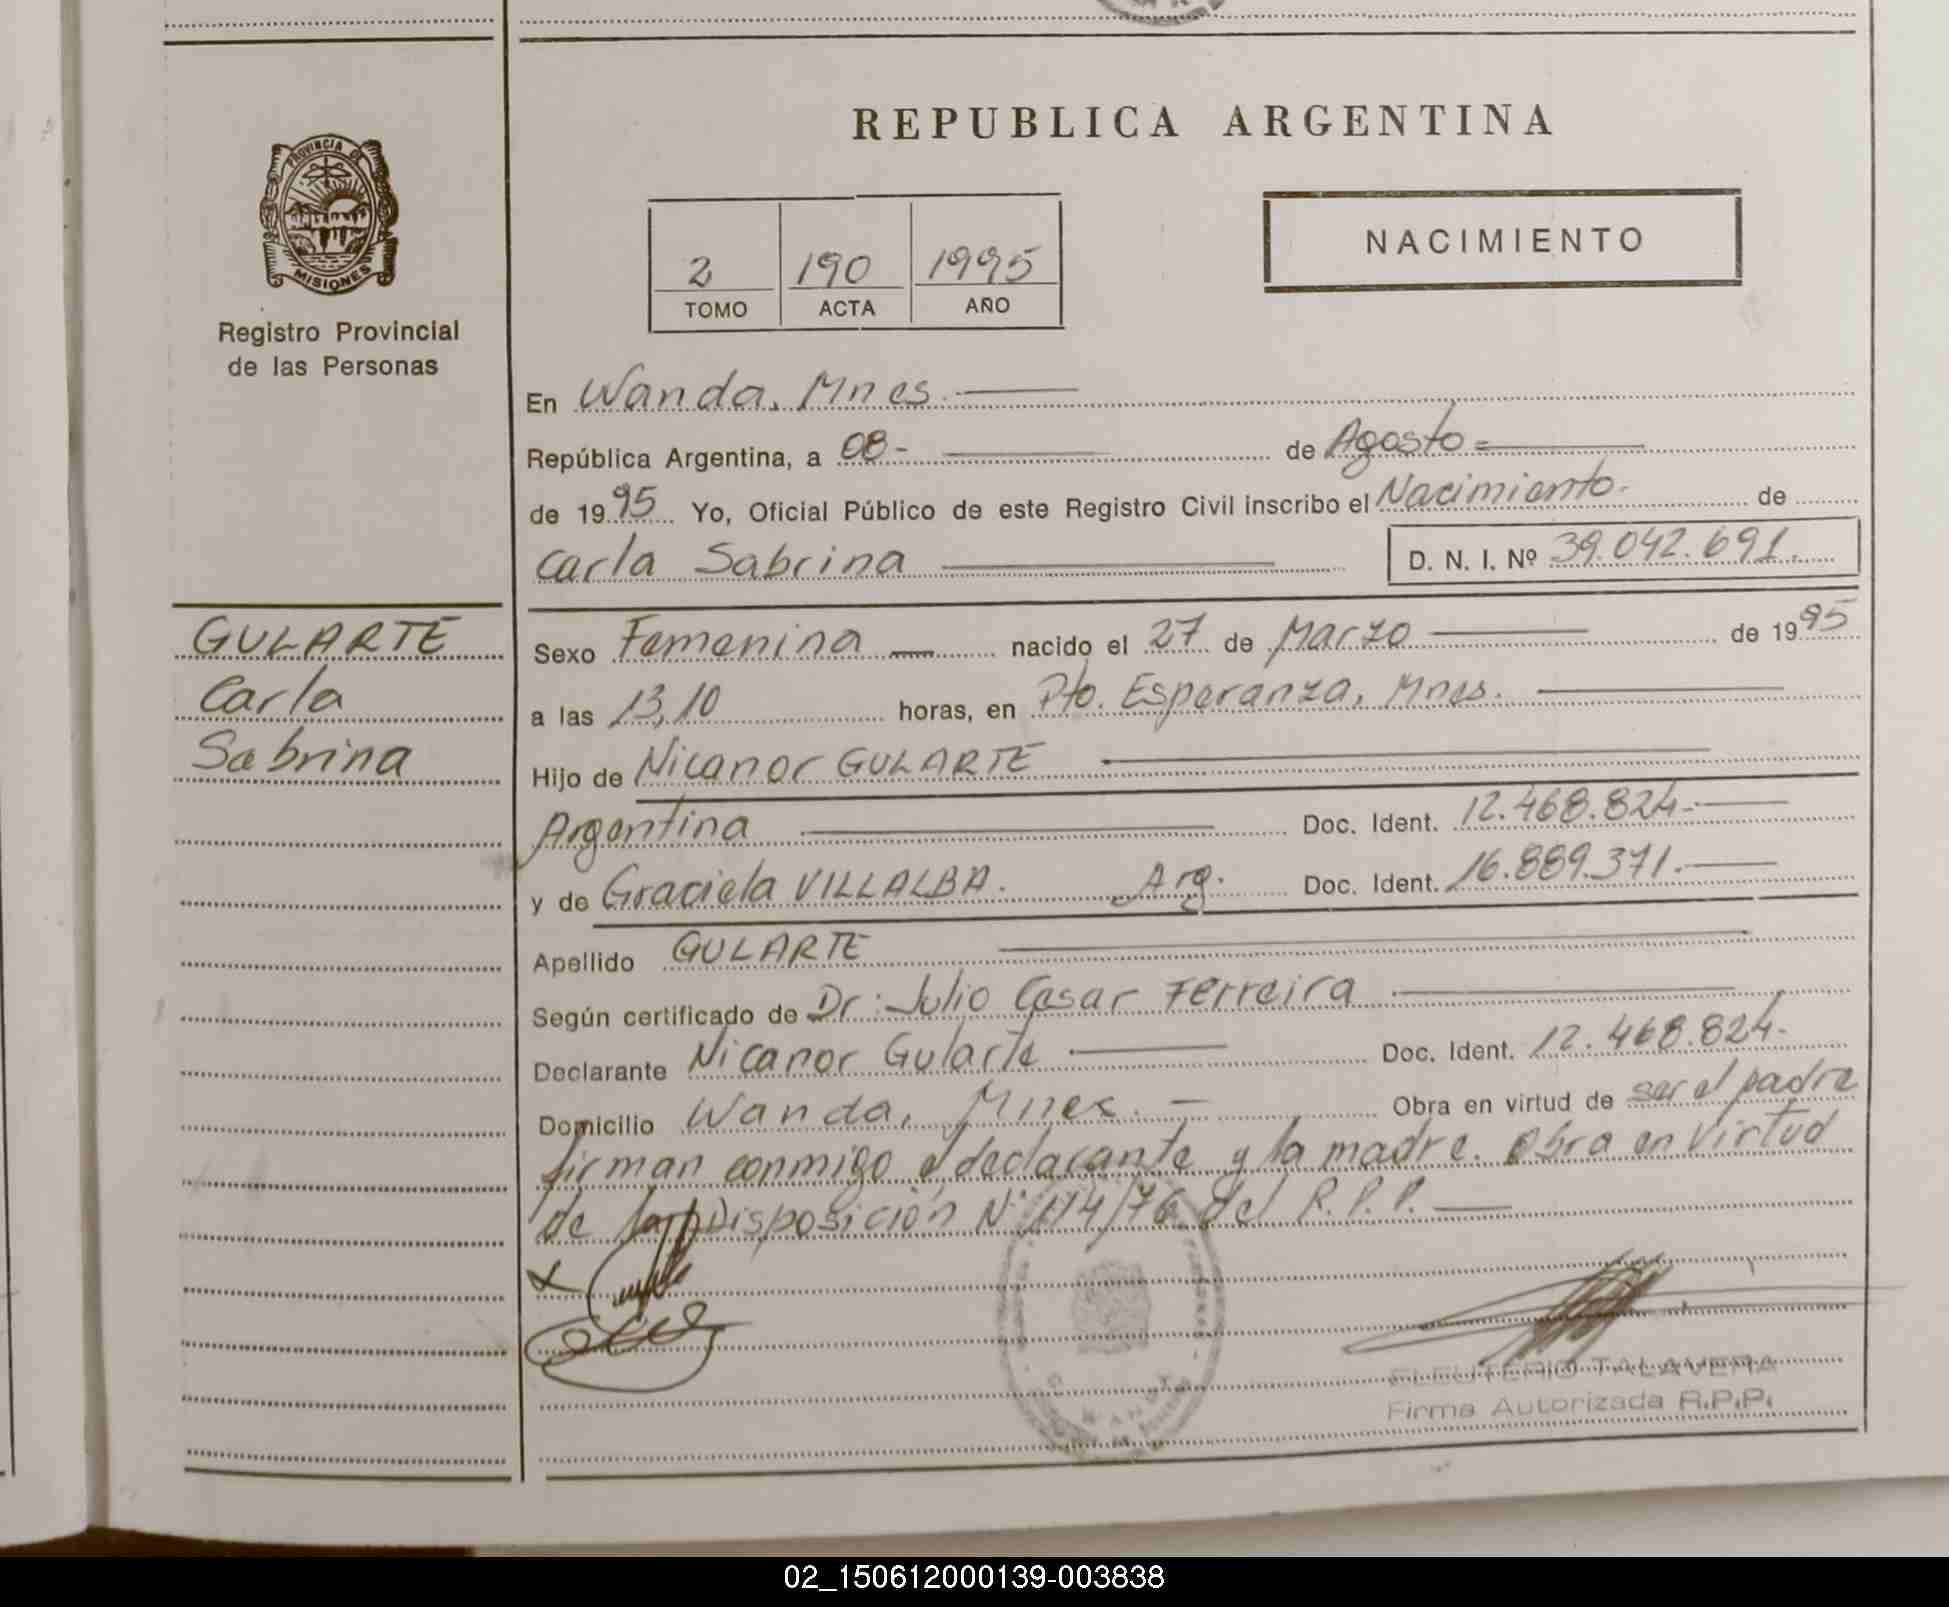 PROVINCIA DE
MISIONES
Registro Provincial
de las Personas
GULARTE
Carla
Sabrina
REPUBLICA ARGENTINA
2 190 1995
TOMO ACTA AÑO
NACIMIENTO
En Wanda, Mnes.
República Argentina, a 08- de Agosto =
de 1995 Yo, Oficial Público de este Registro Civil inscribo el Nacimiento. de
Carla Sabrina D. N. I. Nº 39.042.691.
Sexo Femenina nacido el 27 de Marzo de 1995
a las 13,10 horas, en Pto. Esperanza, Mnes.
Hijo de Nicanor GULARTE
Argentina Doc. Ident. 12.468.824.-
y de Graciela VILLALBA. Arg. Doc. Ident. 16.889.371.-
Apellido GULARTE
Según certificado de Dr: Julio Cesar Ferreira
Declarante Nicanor Gularte Doc. Ident. 12.468.824.-
Domicilio Wanda, Mnes. - Obra en virtud de ser el padre
firman conmigo el declarante y la madre. Obra en Virtud
de la Disposición Nº 114/76 del R.P.P.
WANDA
ELEUTERIO TALAVERA
Firma Autorizada R.P.P.
02_150612000139-003838